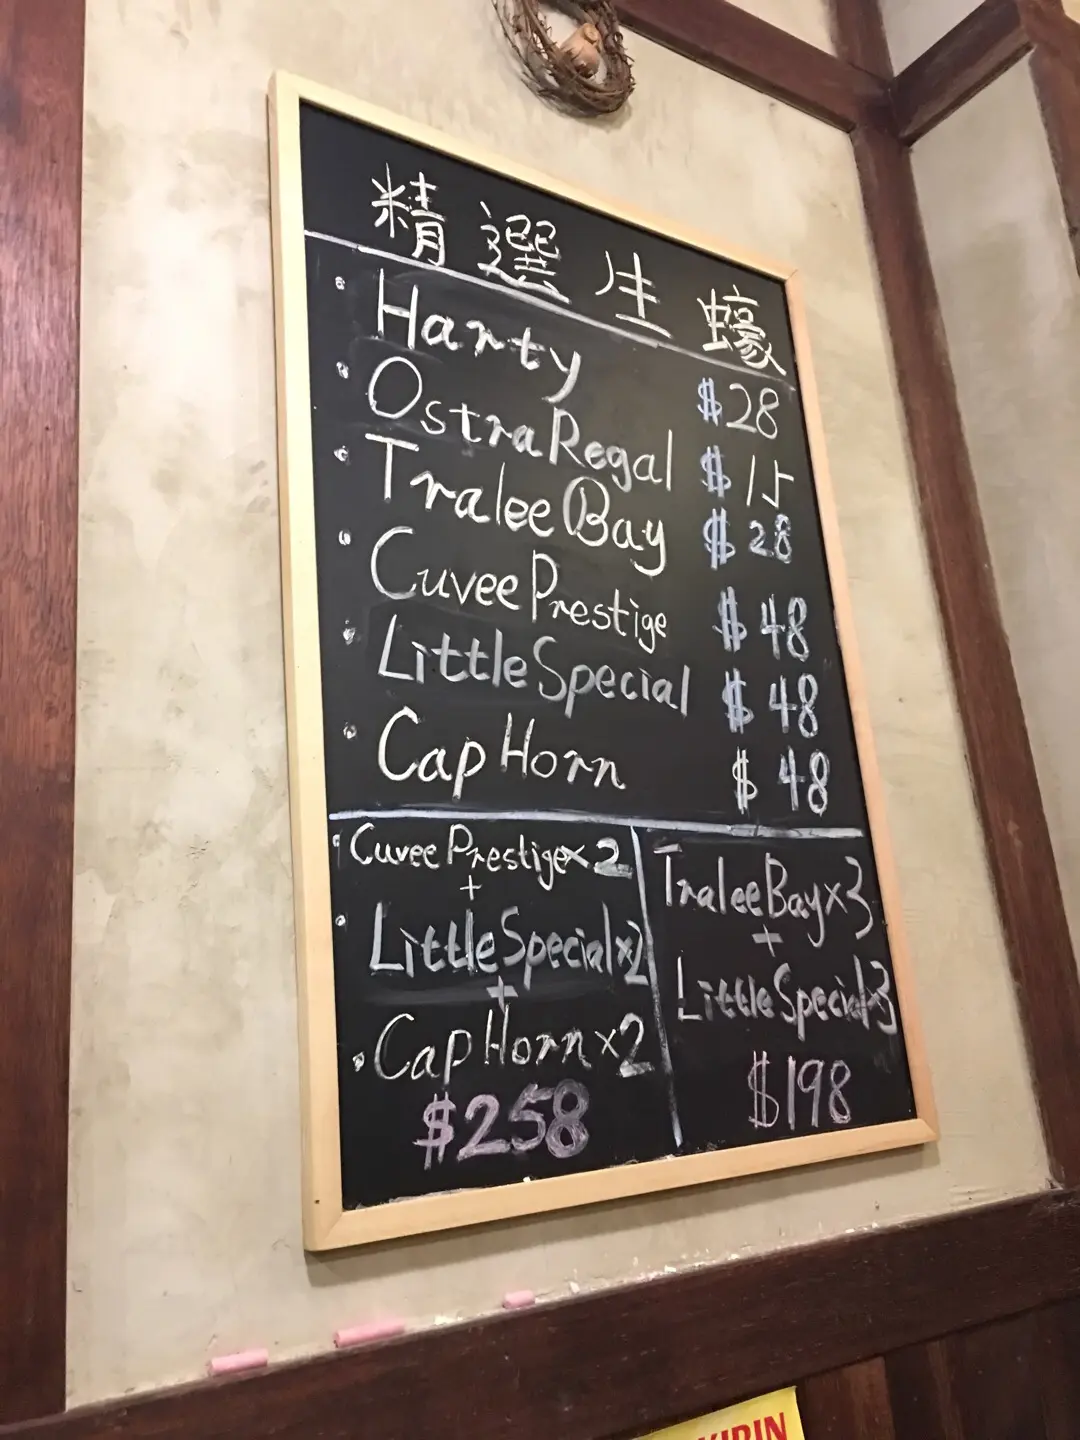 精選生蠔
• Harty $28
• Ostra Regal $15
• Tralee Bay $28
• Cuvee Prestige $48
• Little Special $48
• Cap Horn $48
• Cuvee Prestige x 2
+
• Little Special x 2
+
• Cap Horn x 2
$258
Tralee Bay x 3
+
Little Special x 3
$198
KIRIN